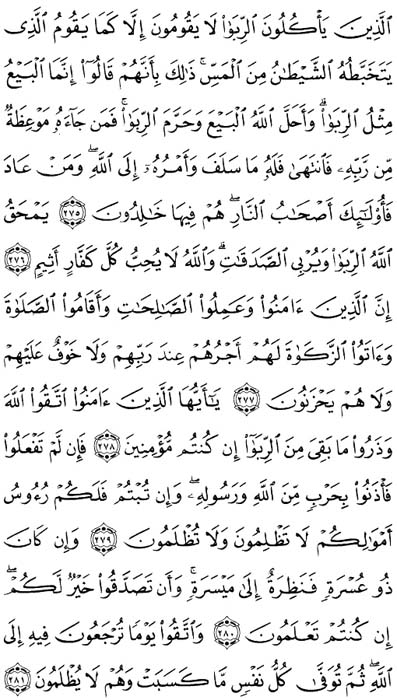 ٱلَّذِينَ يَأۡكُلُونَ ٱلرِّبَوٰاْ لَا يَقُومُونَ إِلَّا كَمَا يَقُومُ ٱلَّذِي
يَتَخَبَّطُهُ ٱلشَّيۡطَٰنُ مِنَ ٱلۡمَسِّۚ ذَٰلِكَ بِأَنَّهُمۡ قَالُوٓاْ إِنَّمَا ٱلۡبَيۡعُ
مِثۡلُ ٱلرِّبَوٰاْۗ وَأَحَلَّ ٱللَّهُ ٱلۡبَيۡعَ وَحَرَّمَ ٱلرِّبَوٰاْۚ فَمَن جَآءَهُۥ مَوۡعِظَةٞ
مِّن رَّبِّهِۦ فَٱنتَهَىٰ فَلَهُۥ مَا سَلَفَ وَأَمۡرُهُۥٓ إِلَى ٱللَّهِۖ وَمَنۡ عَادَ
فَأُوْلَٰٓئِكَ أَصۡحَٰبُ ٱلنَّارِۖ هُمۡ فِيهَا خَٰلِدُونَ ٢٧٥ يَمۡحَقُ
ٱللَّهُ ٱلرِّبَوٰاْ وَيُرۡبِي ٱلصَّدَقَٰتِۗ وَٱللَّهُ لَا يُحِبُّ كُلَّ كَفَّارٍ أَثِيمٍ ٢٧٦
إِنَّ ٱلَّذِينَ ءَامَنُواْ وَعَمِلُواْ ٱلصَّٰلِحَٰتِ وَأَقَامُواْ ٱلصَّلَوٰةَ
وَءَاتَوُاْ ٱلزَّكَوٰةَ لَهُمۡ أَجۡرُهُمۡ عِندَ رَبِّهِمۡ وَلَا خَوۡفٌ عَلَيۡهِمۡ
وَلَا هُمۡ يَحۡزَنُونَ ٢٧٧ يَٰٓأَيُّهَا ٱلَّذِينَ ءَامَنُواْ ٱتَّقُواْ ٱللَّهَ
وَذَرُواْ مَا بَقِيَ مِنَ ٱلرِّبَوٰٓاْ إِن كُنتُم مُّؤۡمِنِينَ ٢٧٨ فَإِن لَّمۡ تَفۡعَلُواْ
فَأۡذَنُواْ بِحَرۡبٖ مِّنَ ٱللَّهِ وَرَسُولِهِۦۖ وَإِن تُبۡتُمۡ فَلَكُمۡ رُءُوسُ
أَمۡوَٰلِكُمۡ لَا تَظۡلِمُونَ وَلَا تُظۡلَمُونَ ٢٧٩ وَإِن كَانَ
ذُو عُسۡرَةٖ فَنَظِرَةٌ إِلَىٰ مَيۡسَرَةٖۚ وَأَن تَصَدَّقُواْ خَيۡرٞ لَّكُمۡ ۖ
إِن كُنتُمۡ تَعۡلَمُونَ ٢٨٠ وَٱتَّقُواْ يَوۡمٗا تُرۡجَعُونَ فِيهِ إِلَى
ٱللَّهِۖ ثُمَّ تُوَفَّىٰ كُلُّ نَفۡسٖ مَّا كَسَبَتۡ وَهُمۡ لَا يُظۡلَمُونَ ٢٨١